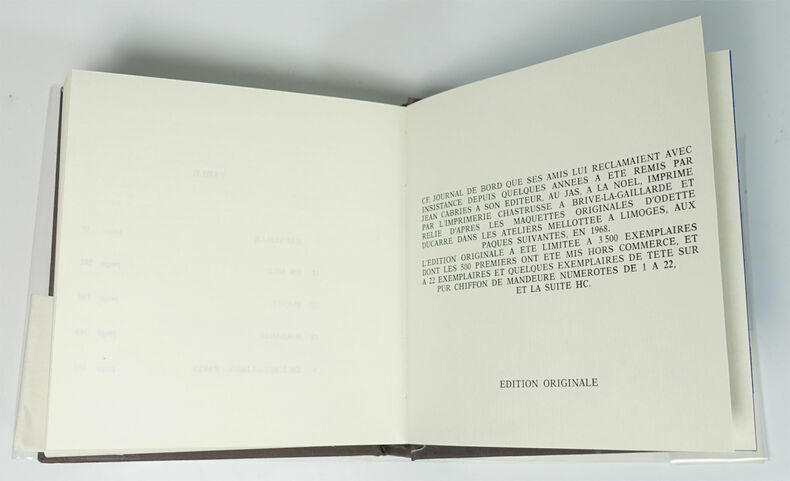 CE JOURNAL DE BORD QUE SES AMIS LUI RECLAMAIENT AVEC
INSISTANCE DEPUIS QUELQUES ANNEES A ETE REMIS PAR
JEAN CABRIES A SON EDITEUR, AU JAS, A LA NOEL, IMPRIME
PAR L'IMPRIMERIE CHASTRUSSE A BRIVE-LA-GAILLARDE ET
RELIE D'APRES LES MAQUETTES ORIGINALES D'ODETTE
DUCARRE DANS LES ATELIERS MELLOTTEE A LIMOGES, AUX
PAQUES SUIVANTES, EN 1968.
L'EDITION ORIGINALE A ETE LIMITEE A 3 500 EXEMPLAIRES
DONT LES 500 PREMIERS ONT ETE MIS HORS COMMERCE, ET
A 22 EXEMPLAIRES ET QUELQUES EXEMPLAIRES DE TETE SUR
PUR CHIFFON DE MANDEURE NUMEROTES DE 1 A 22,
ET LA SUITE HC.
EDITION ORIGINALE